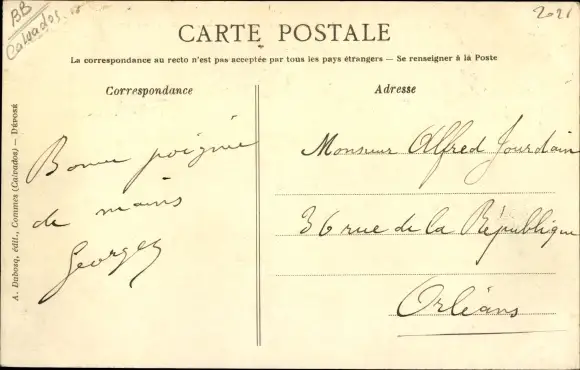 BB
Calvados
2021
CARTE POSTALE
La correspondance au recto n'est pas acceptée par tous les pays étrangers — Se renseigner à la Poste
Correspondance
Adresse
A. Dubosq, édit., Commes (Calvados) — DÉPOSÉ
Bonne poignée
de mains
Georges
Monsieur Alfred Jourdain
36 rue de la République
Orléans